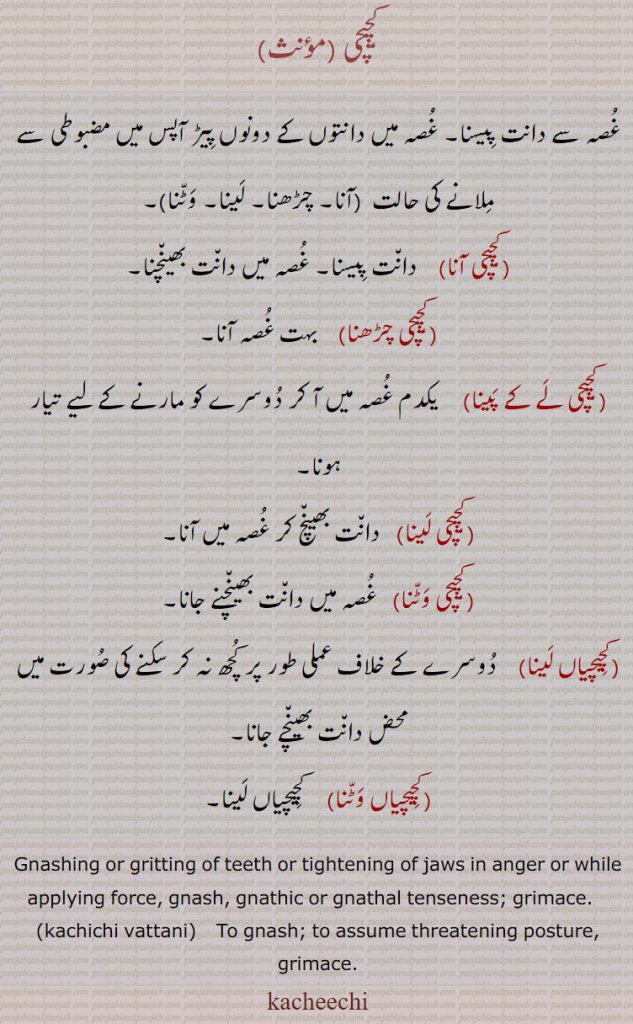 کچِیچی (مؤنث)
غُصہ سے دانت پِیسنا۔ غُصہ میں دانتوں کے دونوں پِیڑ آپس میں مضبوطی سے
مِلانے کی حالت (آنا۔ چڑھنا۔ لَینا۔ وَٹّنا)۔
(کچِیچی آنا) دانّت پِیسنا۔ غُصہ میں دانّت بھینّچنا۔
(کچِیچی چڑھنا) بہت غُصہ آنا۔
(کچِیچی لَے کے پَینا) یکدم غُصہ میں آ کر دُوسرے کو مارنے کے لیے تیار
ہونا۔
(کچِیچی لَینا) دانّت بھینّچ کر غُصہ میں آنا۔
(کچِیچی وَٹّنا) غُصہ میں دانّت بھینّچنے جانا۔
(کچِیچیاں لَینا) دُوسرے کے خلاف عملی طور پر کُچھ نہ کر سکنے کی صُورت میں
محض دانّت بھینّچے جانا۔
(کچِیچیاں وَٹّنا) کچِیچیاں لَینا۔
Gnashing or gritting of teeth or tightening of jaws in anger or while
applying force, gnash, gnathic or gnathal tenseness; grimace.
(kachichi vattani) To gnash; to assume threatening posture,
grimace.
kacheechi